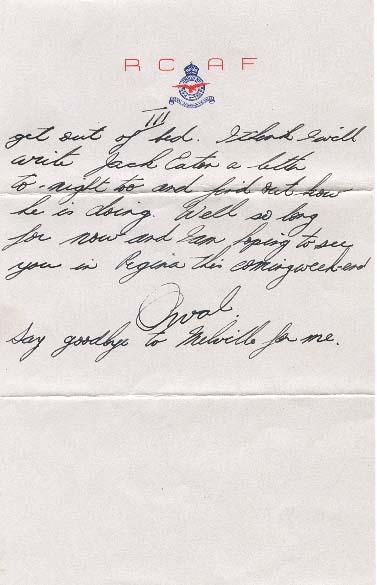 R C A F
III
get out of bed. I think I will
write Jack Eaton a letter
to-night too and find out how
he is doing. Well so long
for now and I am hoping to see
you in Regina this coming week-end
Orval.
Say goodbye to Melville for me.